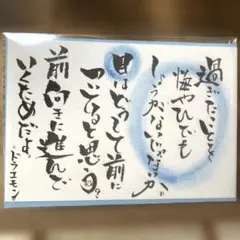 過ぎたことを
悔やんでも
しょうがないじゃないか
目はどうして前に
ついてると思う?
前向きに進んで
いくためだよ
ドラエモン